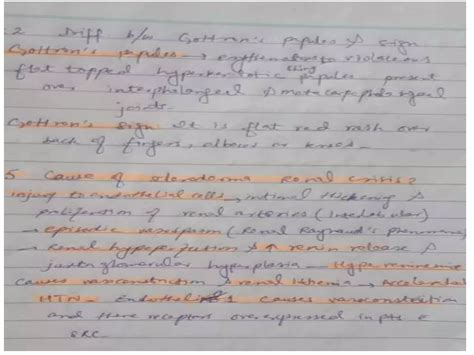 2 Diff b/w Gottron's papules & sign
Gottron's papules → erythematous to violaceous
flat topped hyperkeratotic papules present
over interphalangeal & metacarpophalangeal
joints.
Gottron's sign It is flat red rash over
back of fingers, elbows or knees.
5 Cause of scleroderma renal crisis?
injury to endothelial cells, intimal thickening &
proliferation of renal arteries (Interlobular)
→ episodic vasospasm (Renal Raynaud's phenomena)
→ Renal hypoperfusion & ↑ renin release &
juxtaglomerular hyperplasia → Hyperreninemia
causes vasoconstriction & renal ischemia → Accelerated
HTN → Endothelin 1 causes vasoconstriction
and these receptors overexpressed in pts
SRC.